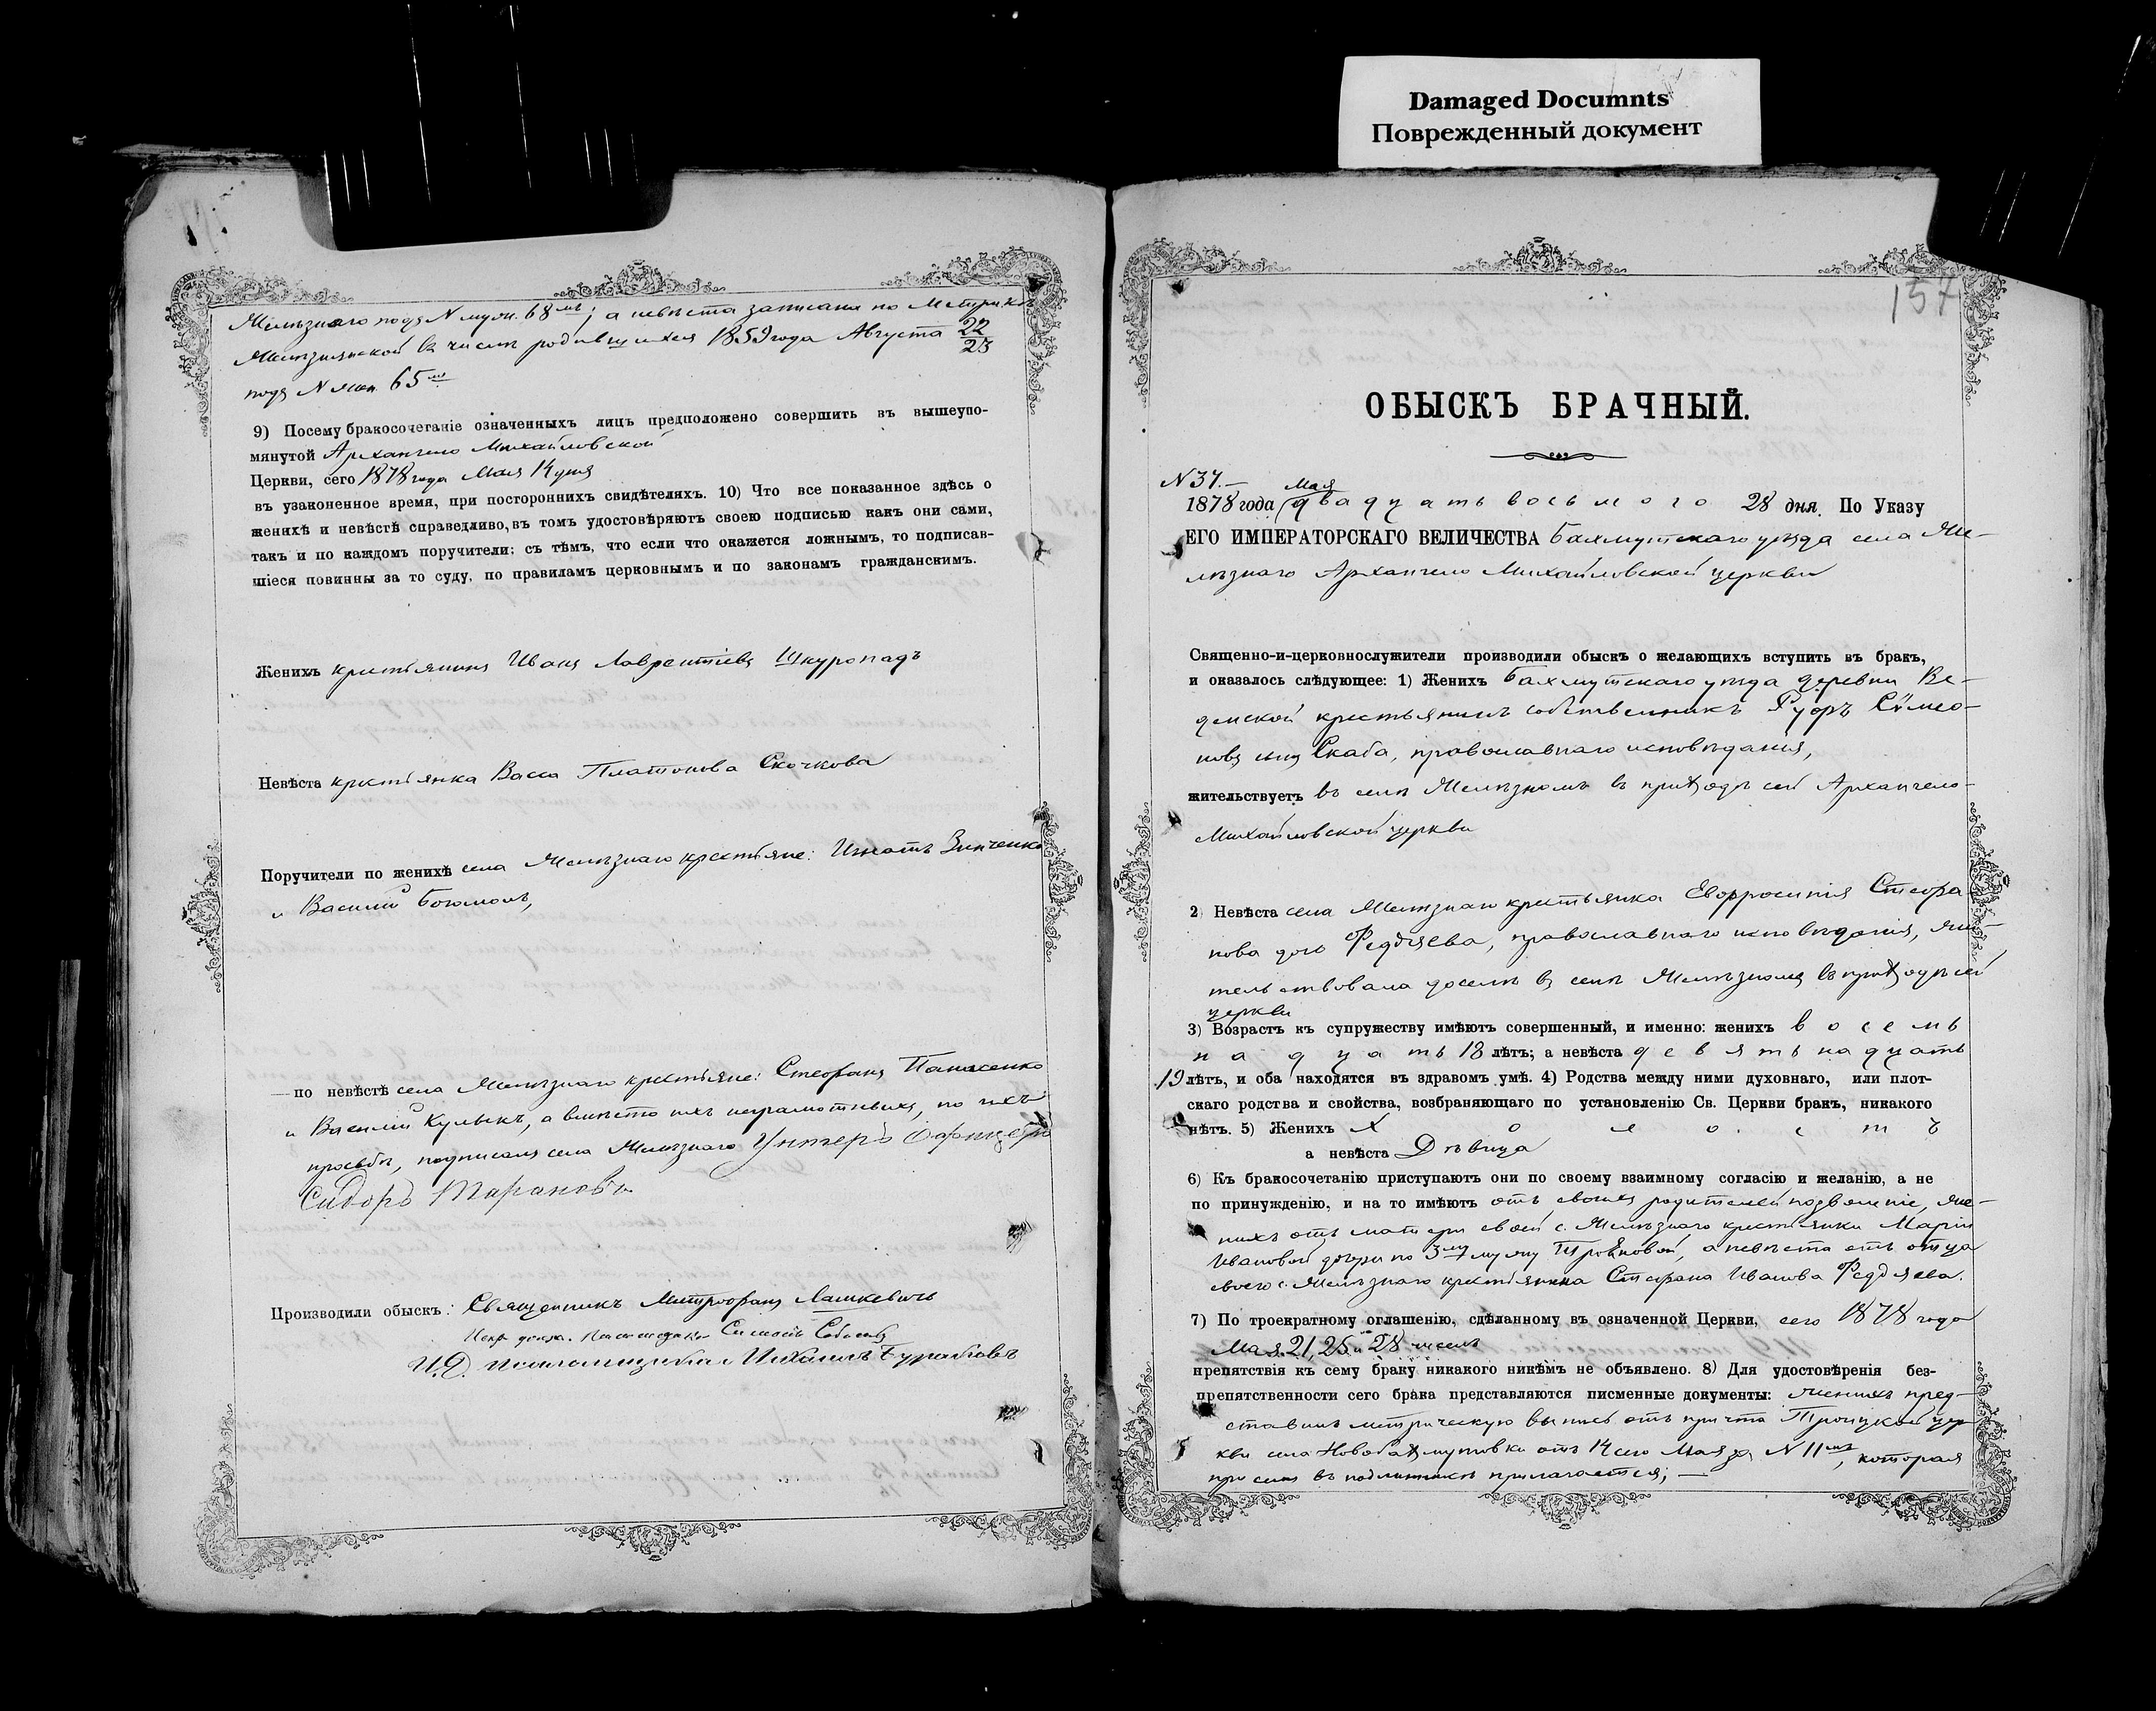 Damaged Documnts
Поврежденный документ
Желѣзнаго подъ N муж. 68мъ; а невѣста записана по Метрикѣ
Желѣзнянской въ числѣ родившихся 1859 года Августа 22/23
подъ N жен. 65мъ
9) Посему бракосочетаніе означенныхъ лицъ предположено совершить въ вышеупо-
мянутой Архангело Михайловской
Церкви, сего 1878 года Мая 14 дня
въ узаконенное время, при постороннихъ свидѣтеляхъ. 10) Что все показанное здѣсь о
женихѣ и невѣстѣ справедливо, въ томъ удостовѣряютъ своею подписью какъ они сами,
такъ и по каждомъ поручители; съ тѣмъ, что если что окажется ложнымъ, то подписав-
шіеся повинны за то суду, по правиламъ церковнымъ и по законамъ гражданскимъ.
Женихъ крестьянинъ Иванъ Лаврентіевъ Шкуропадъ
Невѣста крестьянка Васса Платонова Скочкова
Поручители по женихѣ села Желѣзнаго крестьяне: Игнатъ Зинченко
и Василій Богомолъ,
— по невѣстѣ села Желѣзнаго крестьяне: Стефанъ Панасенко
и Василій Куликъ, а вмѣсто ихъ неграмотныхъ, по ихъ
просьбѣ, подписалъ села Желѣзнаго Унтеръ Офицеръ
Сидоръ Тарановъ
Производили обыскъ: Священникъ Митрофанъ Лашкевичъ
Испр. должн.
И.Д. псаломщика Михаилъ Бураковъ
157
ОБЫСКЪ БРАЧНЫЙ.
N 37.—
1878 года Мая двадцать восьмого 28 дня. По Указу
ЕГО ИМПЕРАТОРСКАГО ВЕЛИЧЕСТВА Бахмутскаго уѣзда села Же-
лѣзнаго Архангело Михайловской церкви
Священно-и-церковнослужители производили обыскъ о желающихъ вступить въ бракъ,
и оказалось слѣдующее: 1) Женихъ Бахмутскаго уѣзда деревни Ве-
денской крестьянинъ собственникъ Ѳѵоръ Сѵмео-
новъ сынъ Скаба, православнаго исповѣданія,
жительствуетъ въ селѣ Желѣзномъ въ приходѣ сей Архангело-
Михайловской церкви
2) Невѣста села Желѣзнаго крестьянка Евфросинія Стефа
нова дочь Федяева, православнаго исповѣданія, жи-
тельствовала доселѣ въ селѣ Желѣзномъ въ приходѣ сей
церкви
3) Возрастъ къ супружеству имѣютъ совершенный, и именно: женихъ восемь
надцать 18 лѣтъ; а невѣста девятьнадцать
19 лѣтъ, и оба находятся въ здравомъ умѣ. 4) Родства между ними духовнаго, или плот-
скаго родства и свойства, возбраняющаго по установленію Св. Церкви бракъ, никакого
нѣтъ. 5) Женихъ Холостъ
а невѣста Дѣвица
6) Къ бракосочетанію приступаютъ они по своему взаимному согласію и желанію, а не
по принужденію, и на то имѣютъ отъ своихъ родителей позволеніе, же-
нихъ отъ матери своей с. Желѣзнаго крестьянки Маріи
Ивановой дочери по 3му мужу, а невѣста отъ отца
своего с. Желѣзнаго крестьянина Стефана Иванова Федяева.
7) По троекратному оглашенію, сдѣланному въ означенной Церкви, сего 1878 года
Мая 21, 25 и 28 чиселъ
препятствія къ сему браку никакого никѣмъ не объявлено. 8) Для удостовѣренія без-
препятственности сего брака представляются писменные документы: женихъ пред-
ставилъ метрическую выпись отъ причта Троицкой цер
кви села Новобахмутовки отъ 14 сего Мая за N 11мъ, которая
при семъ въ подлинникѣ прилагается; —